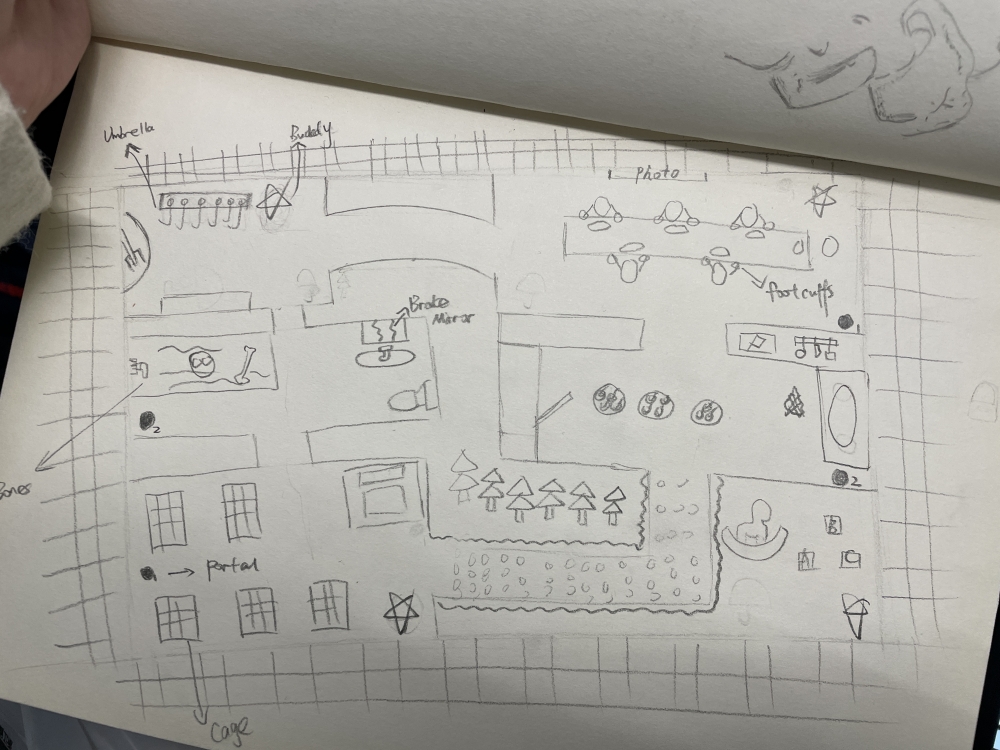 Umbrella
Buddy
Photo
foot cuffs
Broke
Mirror
1
2
Bones
2
portal
Cage